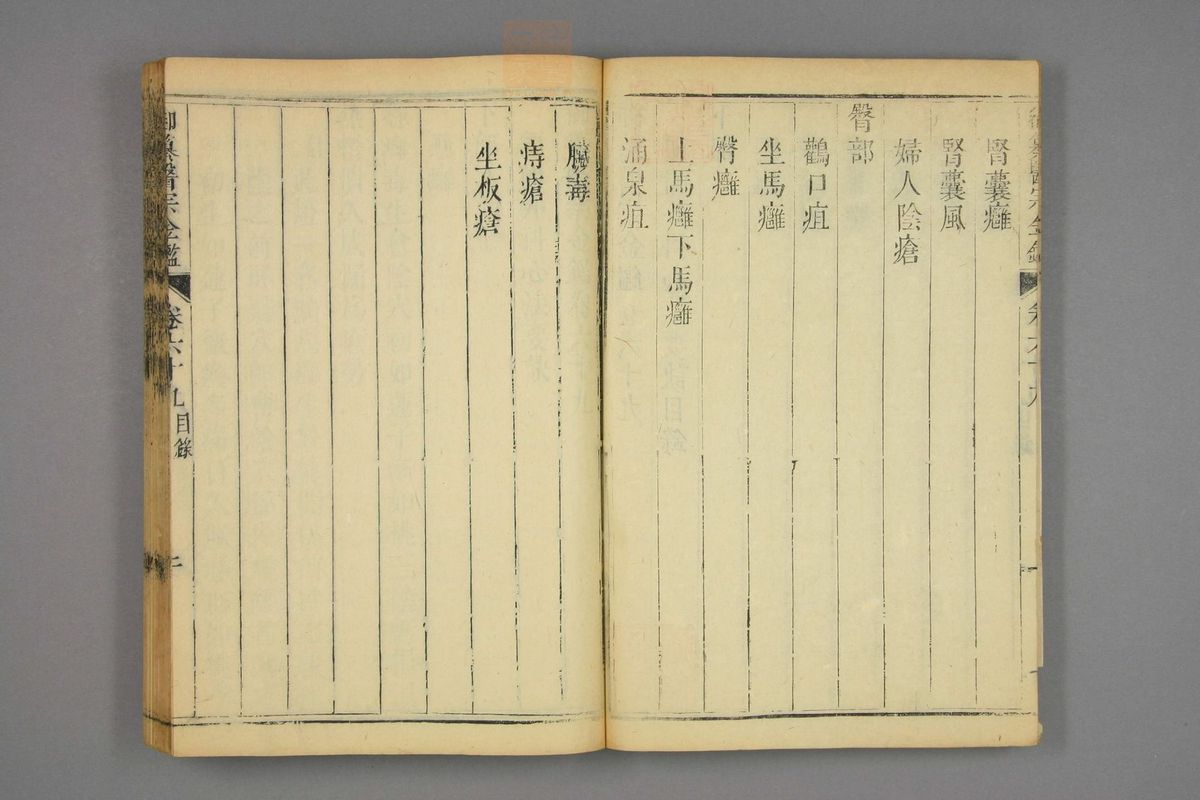 腎囊癰
腎囊風
婦人陰瘡
臀部
鸛口疽
坐馬癰
臀癰
上馬癰下馬癰
涌泉疽
臟毒
痔瘡
坐板瘡
御纂醫宗金鑑 卷六十九 目錄